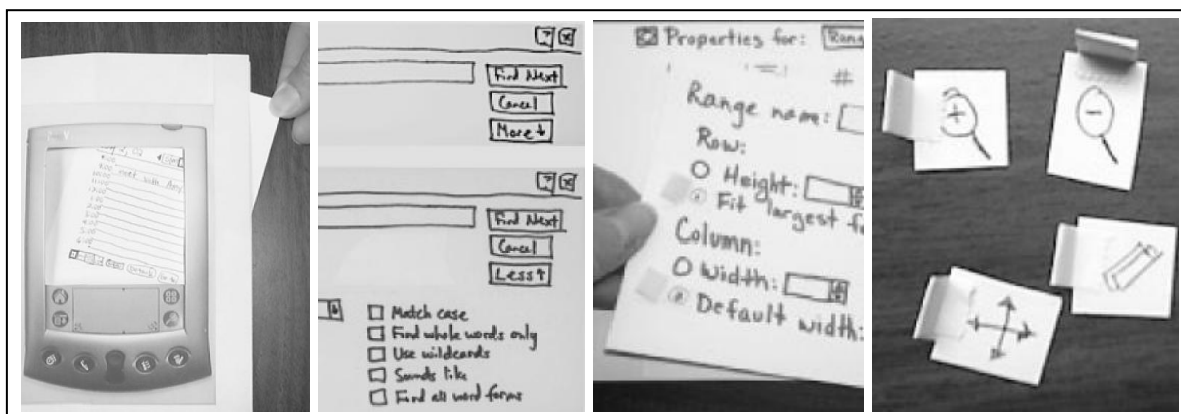 meet with Amy
? X
Find Next
Cancel
More ↓
? X
Find Next
Cancel
Less ↑
Match case
Find whole words only
Use wildcards
Sounds like
Find all word forms
Properties for:
#
Range name:
Row:
Height:
Fit largest
Column:
Width:
Default width:
+
-